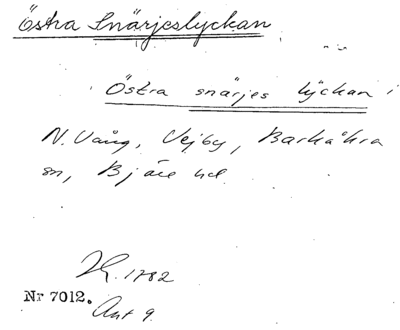 Östra Snärjeslyckan
Östra snärjes lyckan i
N. Vång, Vejby, Barkåkra
sn, Bjäre hd.
K. 1782
Nr 7012.
Akt 9.